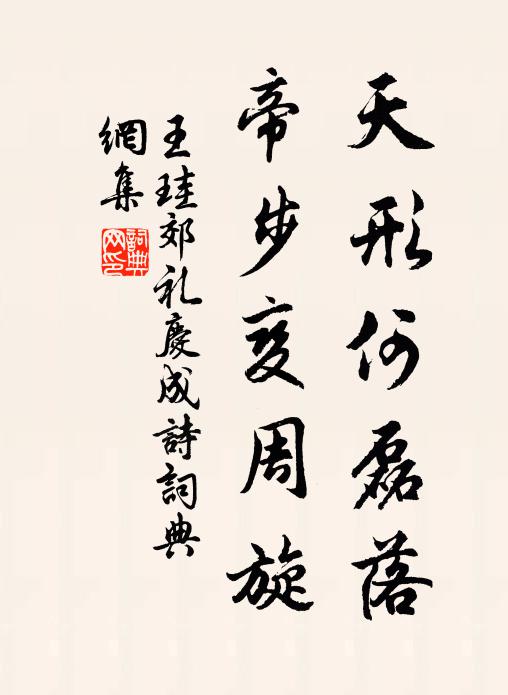 天形何磊落
帝步变周旋
王珪郊礼慶成詩詞典
網集
詞典網印